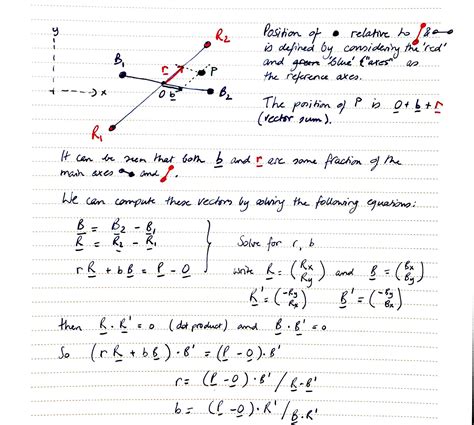 y
x
R2
B1
r
P
O
b
B2
R1
Position of • relative to
& is defined by considering the 'red'
and 'blue' "axes" as
the reference axes.
The position of P is O + b + r
(vector sum).
It can be seen that both b and r are some fraction of the
main axes and .
We can compute these vectors by solving the following equations:
B = B2 - B1
R = R2 - R1
r R + b B = P - O
Solve for r, b
write R = (Rx Ry) and B = (Bx By)
R' = (-Ry Rx) B' = (-By Bx)
then R . R' = 0 (dot product) and B . B' = 0
So (r R + b B) . B' = (P - O) . B'
r = (P - O) . B' / B . B'
b = (P - O) . R' / B . R'